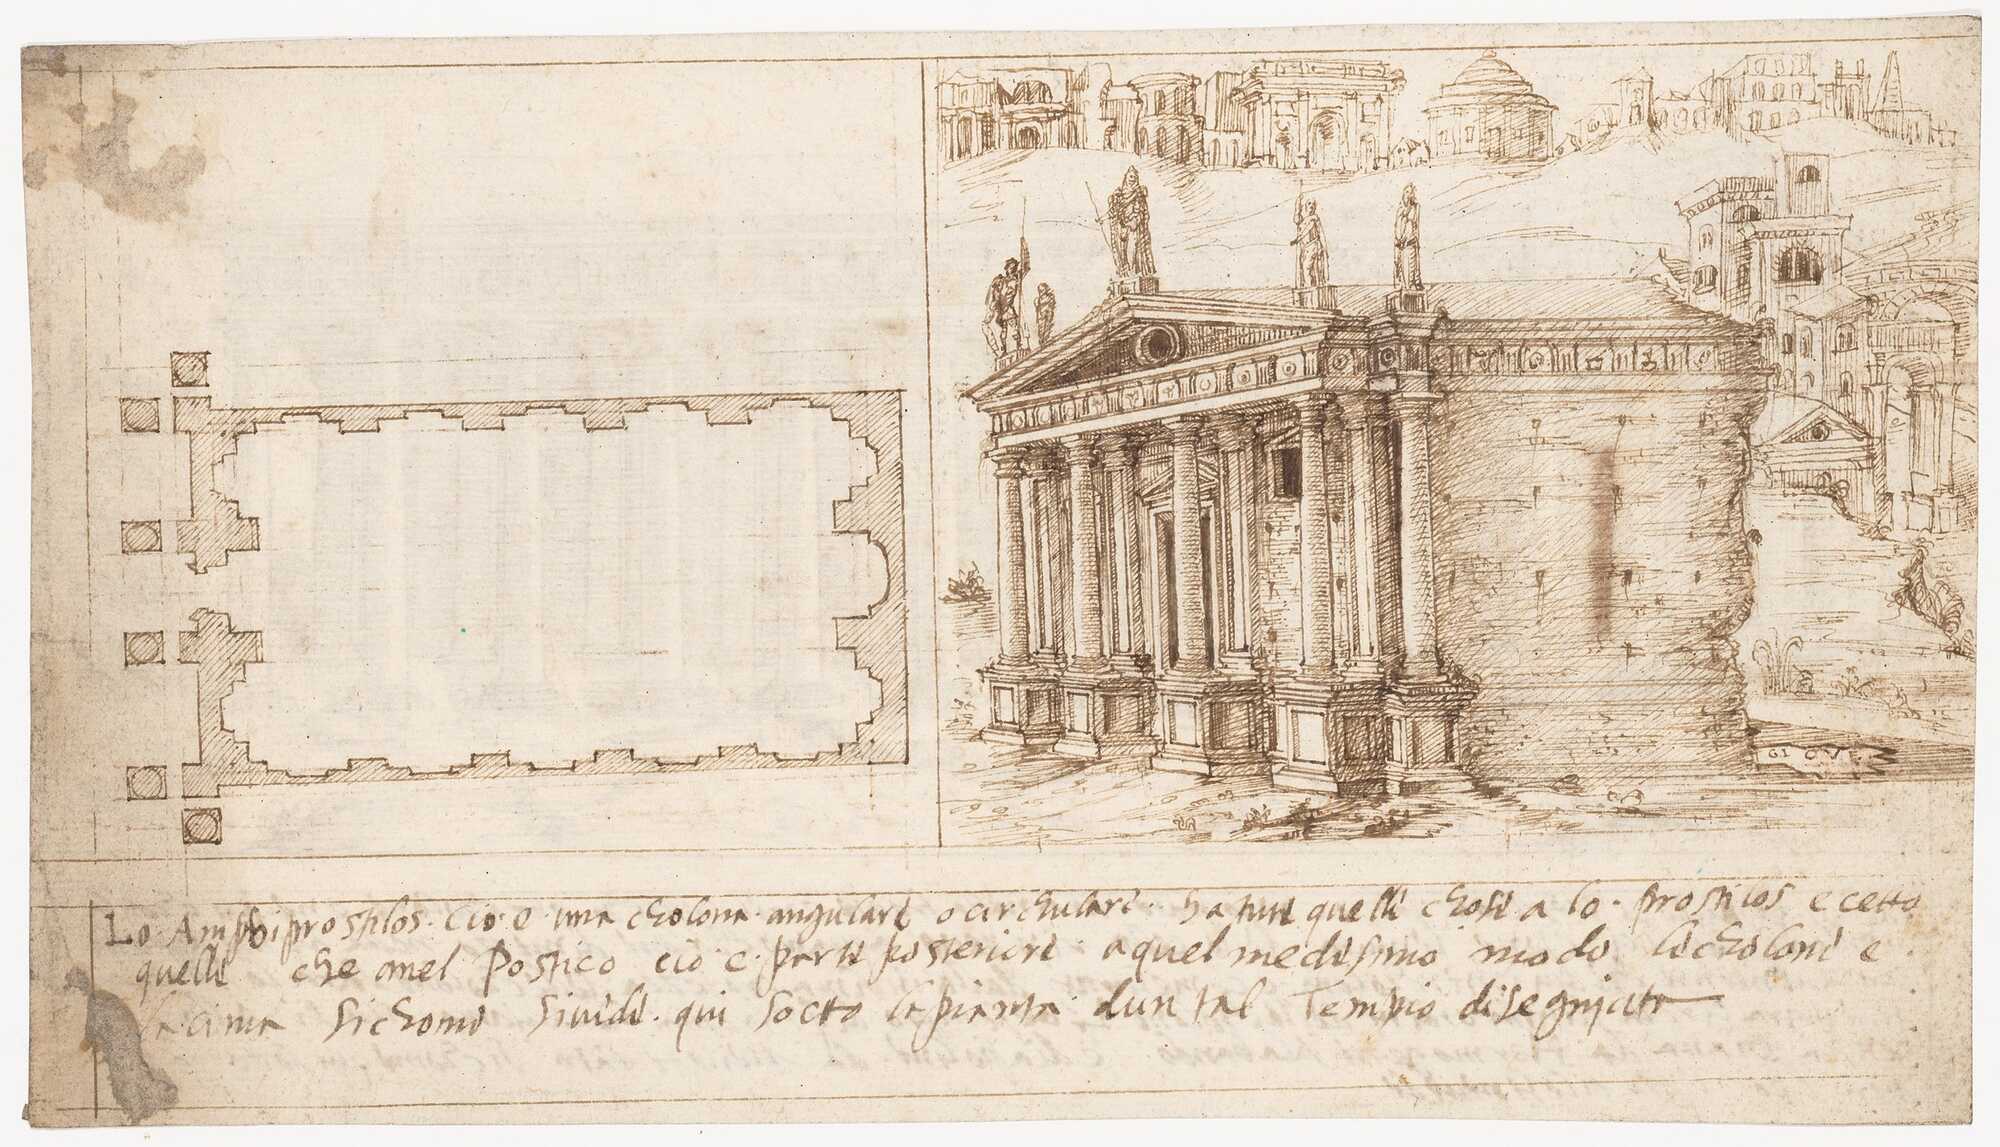 GIOVE
Lo Amphiprostilos. cio e. una cholona. angulare o circhulare. ha tute quelle chose a lo. prostilos ecetto
quelle che anel Postico cio e. parte posteriore. aquel medesimo modo le cholone e
la cima sichome sivide. qui socto la pianta dun tal Tempio disegniata